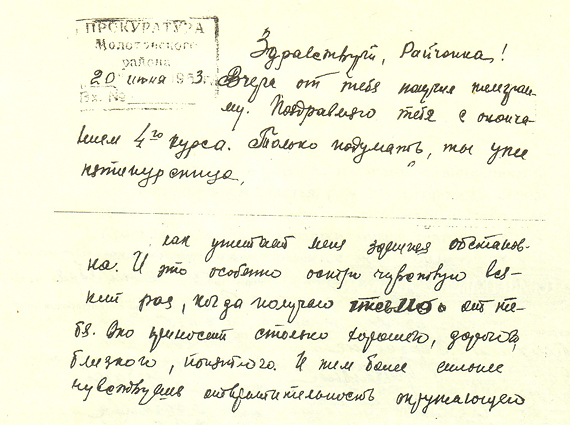 ПРОКУРАТУРА
Молотовского
района
20 июня 953г.
Вх. №
Здравствуй, Раичонка!
Вчера от тебя получил телеграм-
му. Поздравляю тебя с оконча-
нием 4го курса. Только подумать, ты уже
пятикурсница,
как угнетает меня здешняя обстанов-
ка. И это особенно остро чувствую вся-
кий раз, когда получаю письмо от те-
бя. Оно приносит столько хорошего, дорогого,
близкого, понятного. И тем более сильнее
чувствуешь отвратительность окружающего